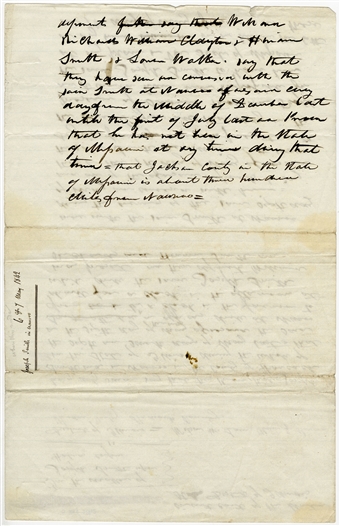 deponent further say that Willard
Richards William Clayton & Hiram
Smith & Loren Walker. say that
they have seen an conversed with the
said Smith at Nauvoo aforesaid every
day from the Middle of December last
until the first of July last an know
that he has not been in the State
of Missouri at any time during that
time = that Jackson County in the State
of Missouri is about three hundred
Miles from Nauvoo =
Joseph Smith in
6 & 7 May 1842